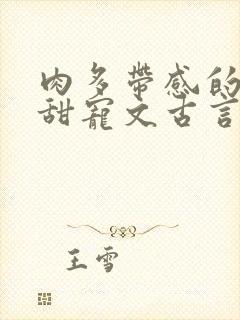 肉多带感的
甜寵文古言
王雪